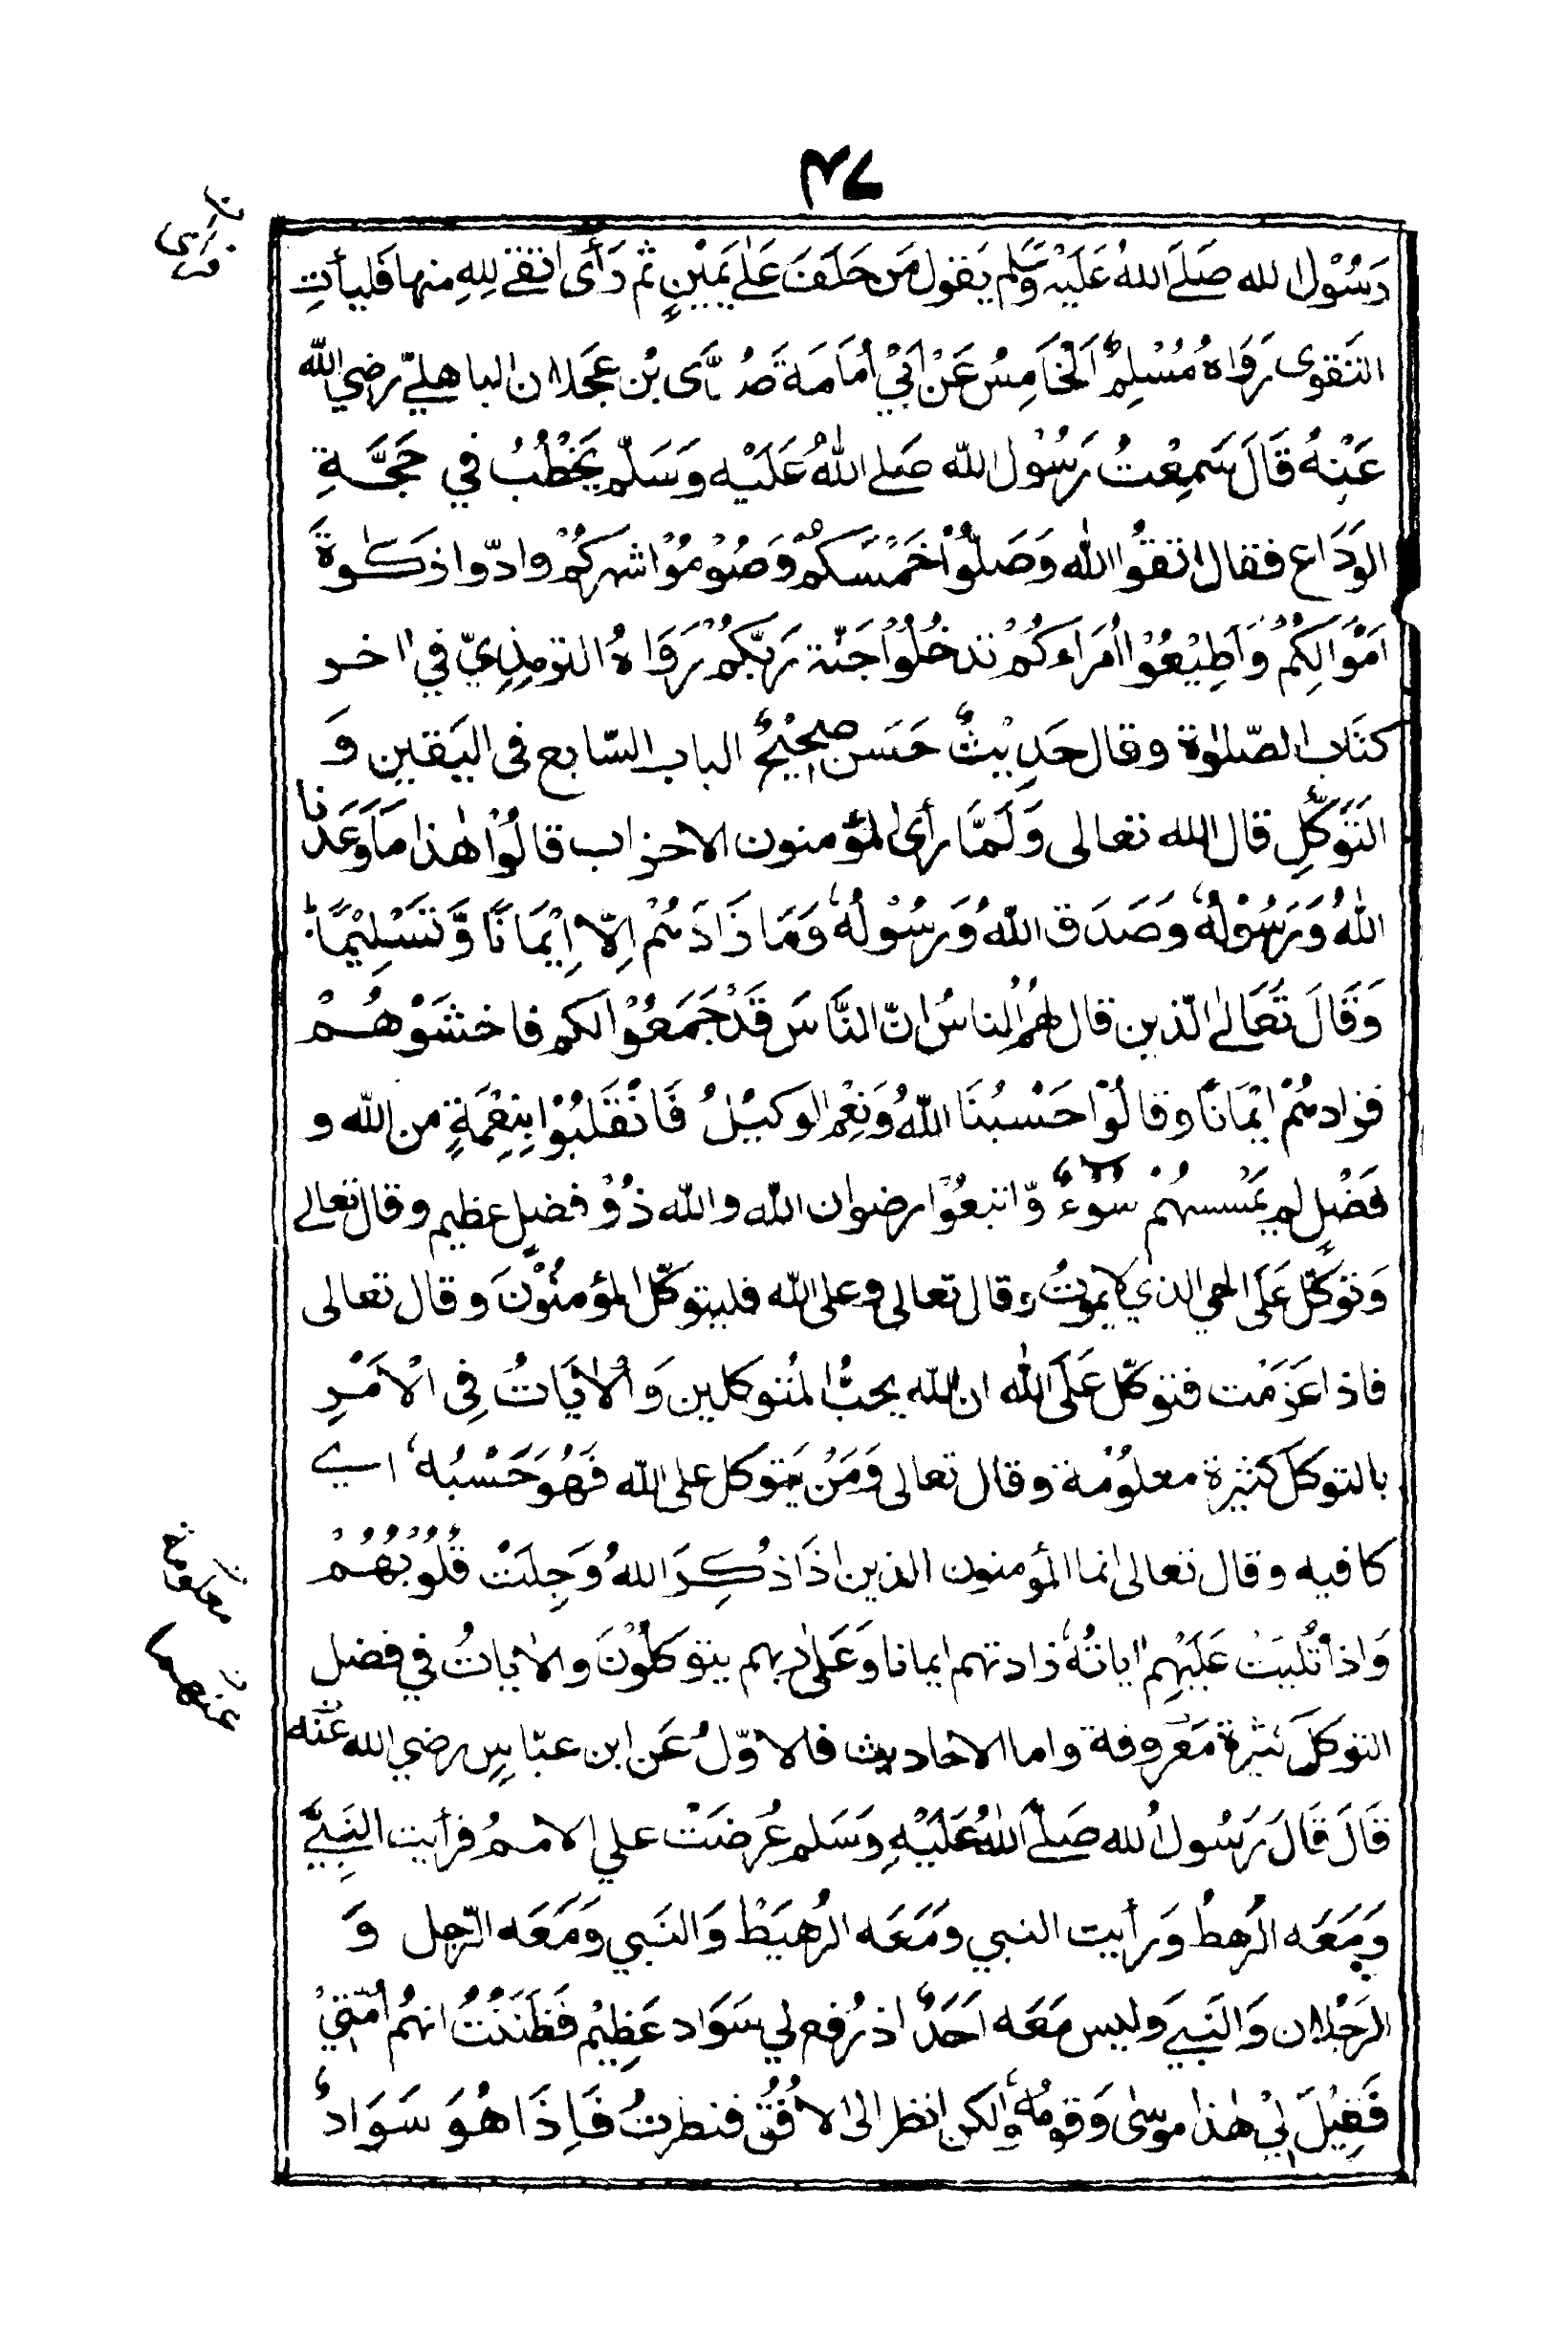 ٤٧
رَسُوْلَ الله صَلَى اللهُ عَلَيْهِ وَسَلم يَقول مَن حَلَفَ عَلىٰ يَمِيْنٍ ثم رَأَى اتقى لِلهِ منها فَليأتِ
التَقوى رَوَاهُ مُسْلِمٌ اَلْخَامِسُ عَنْ اَبِيْ اُمَامَةَ صُدَيِّ بْن عَجلان الباهليّ رضي الله
عَنْهُ قَالَ سَمِعْتُ رَسُوْل الله صَلى اللهُ عَلَيْه وَسَلّم يَخْطُبُ في حَجَّةِ
الوَدَاعِ فقال اتقُوا الله وَصَلُّوْا خَمْسَكمْ وَصُوْمُوْا شهركمْ وادّوا زكوةَ
اَمْوَالِكُمْ وَاَطِيْعُوْا اُمَرَاءكمْ تدخُلُوْا جَنّة رَبّكمْ رَوَاهُ الترمِذِيّ في اٰخر
كتَاب الصّلوٰة وقال حَدِيْثٌ حَسَن صحِيْحٌ الباب السّابع فى اليَقين وَ
التَوَكّلِ قال الله تعالى وَلَمَّا رأى المؤمنون الاحزاب قالُوْا هٰذا مَا وَعَدَنا
اللهُ وَرَسُوْلُهٗ وَصَدَق اللهُ وَرَسُوْلُهٗ وَمَا زَادَهُمْ اِلّا اِيْمَانًا وَّتَسْلِيْمًا
وَقَالَ تَعَالىٰ الّذين قال لهُمُ الناسُ انّ النَّاسَ قَدْ جَمَعُوْا لكم فاخشَوْهُمْ
فزادهُمْ اِيْمَانًا وقالُوْا حَسْبُنَا اللهُ وَنِعْم الوكيْلُ فَانْقَلَبُوْا بِنِعْمَةٍ من الله و
فَضْلٍ لم يَمْسسهُمْ سُوْءٌ وّاتبعُوْا رضوان الله والله ذُوْ فضلٍ عظيم وقال تعالى
وَتوَكّلْ عَلَى الحي الذي لا يموتُ وقال تعالى وعلى الله فليتوكّل المؤمنُوْنَ وقال تعالى
فاذا عَزَمْت فتوكّل عَلَى الله ان الله يحبُّ المُتوكلين وَالاٰيَاتُ فِى الْاَمْرِ
بالتوكل كثيرة معلُوْمة وقال تعالى وَمَنْ يَتوكل على الله فَهُوَ حَسْبُهٗ اي
كافيه وقال تعالى انما المؤمنون الذين اذَا ذُكِرَ اللهُ وَجِلَتْ قُلُوْبُهُمْ
وَاذا تُليَتْ عَلَيْهِم اٰياتُهٗ زادتهم ايمانا وَعَلىٰ ربهم يتوكلُوْنَ والاٰياتُ في فضل
التوكل كثيرة مَعروفة واما الاحاديث فالاوّلُ عَن ابن عبّاسٍ رضي الله عَنه
قَالَ قَالَ رَسُولُ الله صَلىَ اللهُ عَلَيْهِ وَسَلم عُرضَتْ علي الاممُ فرأيت النَبِيَّ
وَمَعَه الرُهطُ وَرأيت النبي وَمَعَه الرُهيَطْ وَالنَبي وَمَعَه الرّجل وَ
الرَجُلان وَالنَبيَ وَليس مَعَه اَحَدٌ اذ رُفع لي سَوَاد عَظِيْم فَظَنَنْتُ انهُم اُمّتيْ
فَقِيْلَ لِيْ هٰذا موسىٰ وَقومُهٗ وَلٰكن انظر الى الاُفُقُ فنظرتُ فَاِذَا هُوَ سَوَادٌ